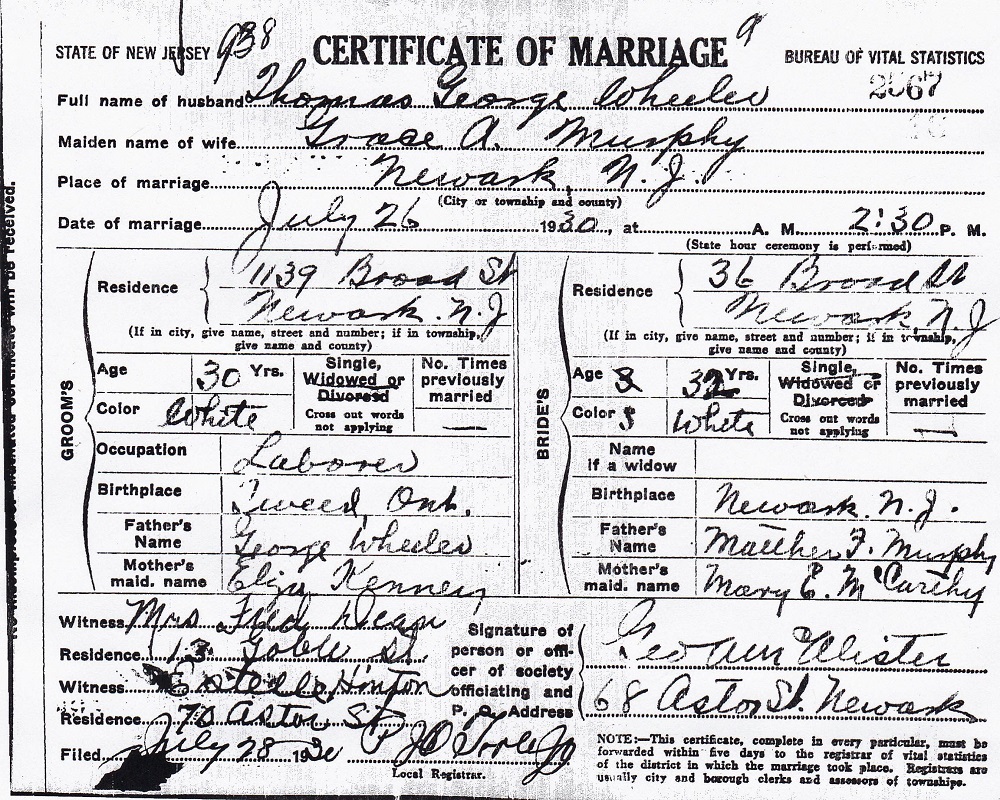 STATE OF NEW JERSEY 938 CERTIFICATE OF MARRIAGE 9 BUREAU OF VITAL STATISTICS
2567
Full name of husband Thomas George Wheeler
Maiden name of wife Grace A. Murphy
Place of marriage Newark, N. J.
(City or township and county)
Date of marriage July 26 1930, at A. M. 2:30 P. M.
(State hour ceremony is performed)
GROOM'S
Residence 1139 Broad St
Newark. N. J
(If in city, give name, street and number; if in township, give name and county)
Age 30 Yrs. Single, Widowed or Divorced No. Times previously married
Color White Cross out words not applying —
Occupation Laborer
Birthplace Tweed, Ont.
Father's Name George Wheeler
Mother's maid. name Eliza Kenney
BRIDE'S
Residence 36 Broad St
Newark, N. J
(If in city, give name, street and number; if in township, give name and county)
Age 32 Yrs. Single, Widowed or Divorced No. Times previously married
Color White Cross out words not applying —
Name if a widow
Birthplace Newark. N. J.
Father's Name Matthew F. Murphy
Mother's maid. name Mary E. McCarthy
Witness Mrs Fred Dean
Residence 13 Goble St.
Witness Estelle Hinton
Residence 70 Astor St
Filed July 28 1930
Local Registrar.
Signature of person or officer of society officiating and P. O. Address
68 Astor St. Newark
NOTE:—This certificate, complete in every particular, must be
forwarded within five days to the registrar of vital statistics
of the district in which the marriage took place. Registrars are
usually city and borough clerks and assessors of townships.